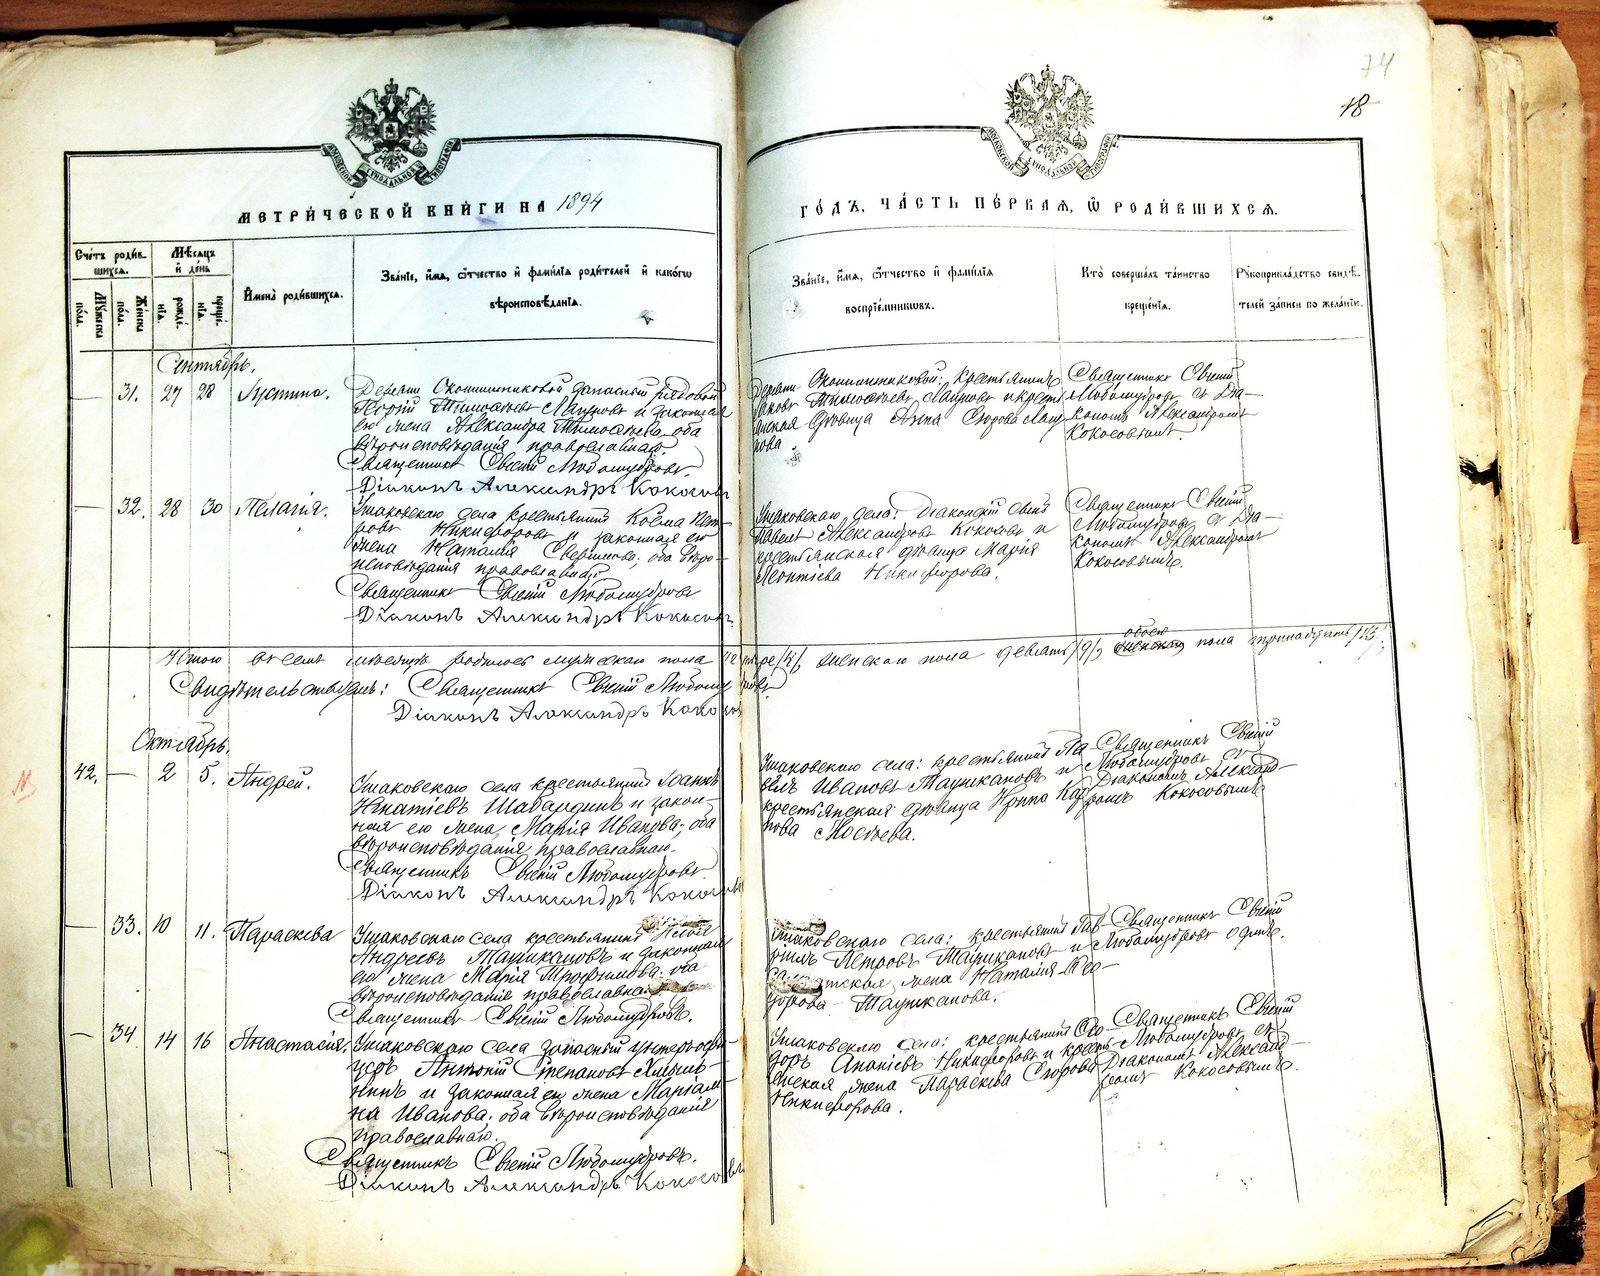 74
18
МЕТРИ́ЧЕСКОЙ КНИ́ГИ НА 1894
ГО́ДЪ, ЧА́СТЬ ПЕ́РВАЯ, Ѡ РОДИ́ВШИХСЯ.
Сче́тъ роди́в-
шихся.
Мꙋ́жеска
по́ла.
Же́нска
по́ла.
Мѣ́сяцъ
и҆ де́нь
рожде́-
нія.
креще́-
нія.
И҆мена̀ роди́вшихся.
Зва́нїе, и҆́мя, ѻ҆́тчество и҆ фами́лїя роди́телей и҆ како́гѡ
вѣроисповѣ́данїя.
Зва́нїе, и҆́мя, ѻ҆́тчество и҆ фами́лїя
воспрїе́мникѡвъ.
Кто̀ соверша́лъ та́инство
креще́нїя.
Рꙋкоприкла́дство свидѣ́-
телей за́писи по жела́нїю.
Сентябрь.
— 31. 27 28 Іустина.
Деревни запасный рядовой
Георгій Тимоѳеевъ и законная
его жена Александра Тимоѳеева, оба
вѣроисповѣданія православнаго.
Священникъ Евгеній Любомудровъ.
Діаконъ Александръ Кокосовъ
Деревни крестьянинъ
Яковъ Тимоѳеевъ и кресть-
янская дѣвица Анна
Священникъ Евгеній
Любомудровъ съ Діа-
кономъ Александромъ
Кокосовымъ.
— 32. 28 30 Пелагія.
Ушаковскаго села крестьянинъ Косма Пет-
ровъ Никифоровъ и законная его
жена Наталія оба вѣро-
исповѣданія православнаго.
Священникъ Евгеній Любомудровъ
Діаконъ Александръ Кокосовъ.
Ушаковскаго села: діаконскій сынъ
Павелъ Александровъ Кокосовъ и
крестьянская дѣвица Марія
Леонтіева Никифорова.
Священникъ Евгеній
Любомудровъ съ Діа-
кономъ Александромъ
Кокосовымъ.
Итого въ семъ мѣсяцѣ родилось мужескаго пола четыре /4/, женскаго пола девять /9/, обоего пола тринадцать /13/.
Свидѣтельствуемъ: Священникъ Евгеній Любомудровъ.
Діаконъ Александръ Кокосовъ
Октябрь.
42. — 2 5. Андрей.
Ушаковскаго села крестьянинъ Іоаннъ
Игнатіевъ Шабалдинъ и закон-
ная его жена Марія Иванова, оба
вѣроисповѣданія православнаго.
Священникъ Евгеній Любомудровъ.
Діаконъ Александръ Кокосовъ
Ушаковскаго села: крестьянинъ Па-
велъ Ивановъ Таушкановъ и
крестьянская дѣвица
Священникъ Евгеній
Любомудровъ съ
Діакономъ Александ-
ромъ Кокосовымъ
— 33. 10 11. Параскева
Ушаковскаго села крестьянинъ
Андреевъ Таушкановъ и законная
его жена Марія Трофимова, оба
вѣроисповѣданія православнаго.
Священникъ Евгеній Любомудровъ.
Ушаковскаго села: крестьянинъ Гав-
ріилъ Петровъ Таушкановъ и
жена Наталія Ѳео-
дорова Таушканова.
Священникъ Евгеній
Любомудровъ одинъ.
— 34 14 16 Анастасія.
Ушаковскаго села запасный унтеръ-офи-
церъ Антоній Степановъ
и законная его жена Маріам-
на Иванова, оба вѣроисповѣданія
православнаго.
Священникъ Евгеній Любомудровъ.
Діаконъ Александръ Кокосовъ
Ушаковскаго села: крестьянинъ Ѳео-
доръ Ананіевъ Никифоровъ и кресть-
янская жена Параскева
Никифорова.
Священникъ Евгеній
Любомудровъ съ
Діакономъ Александ-
ромъ Кокосовымъ.